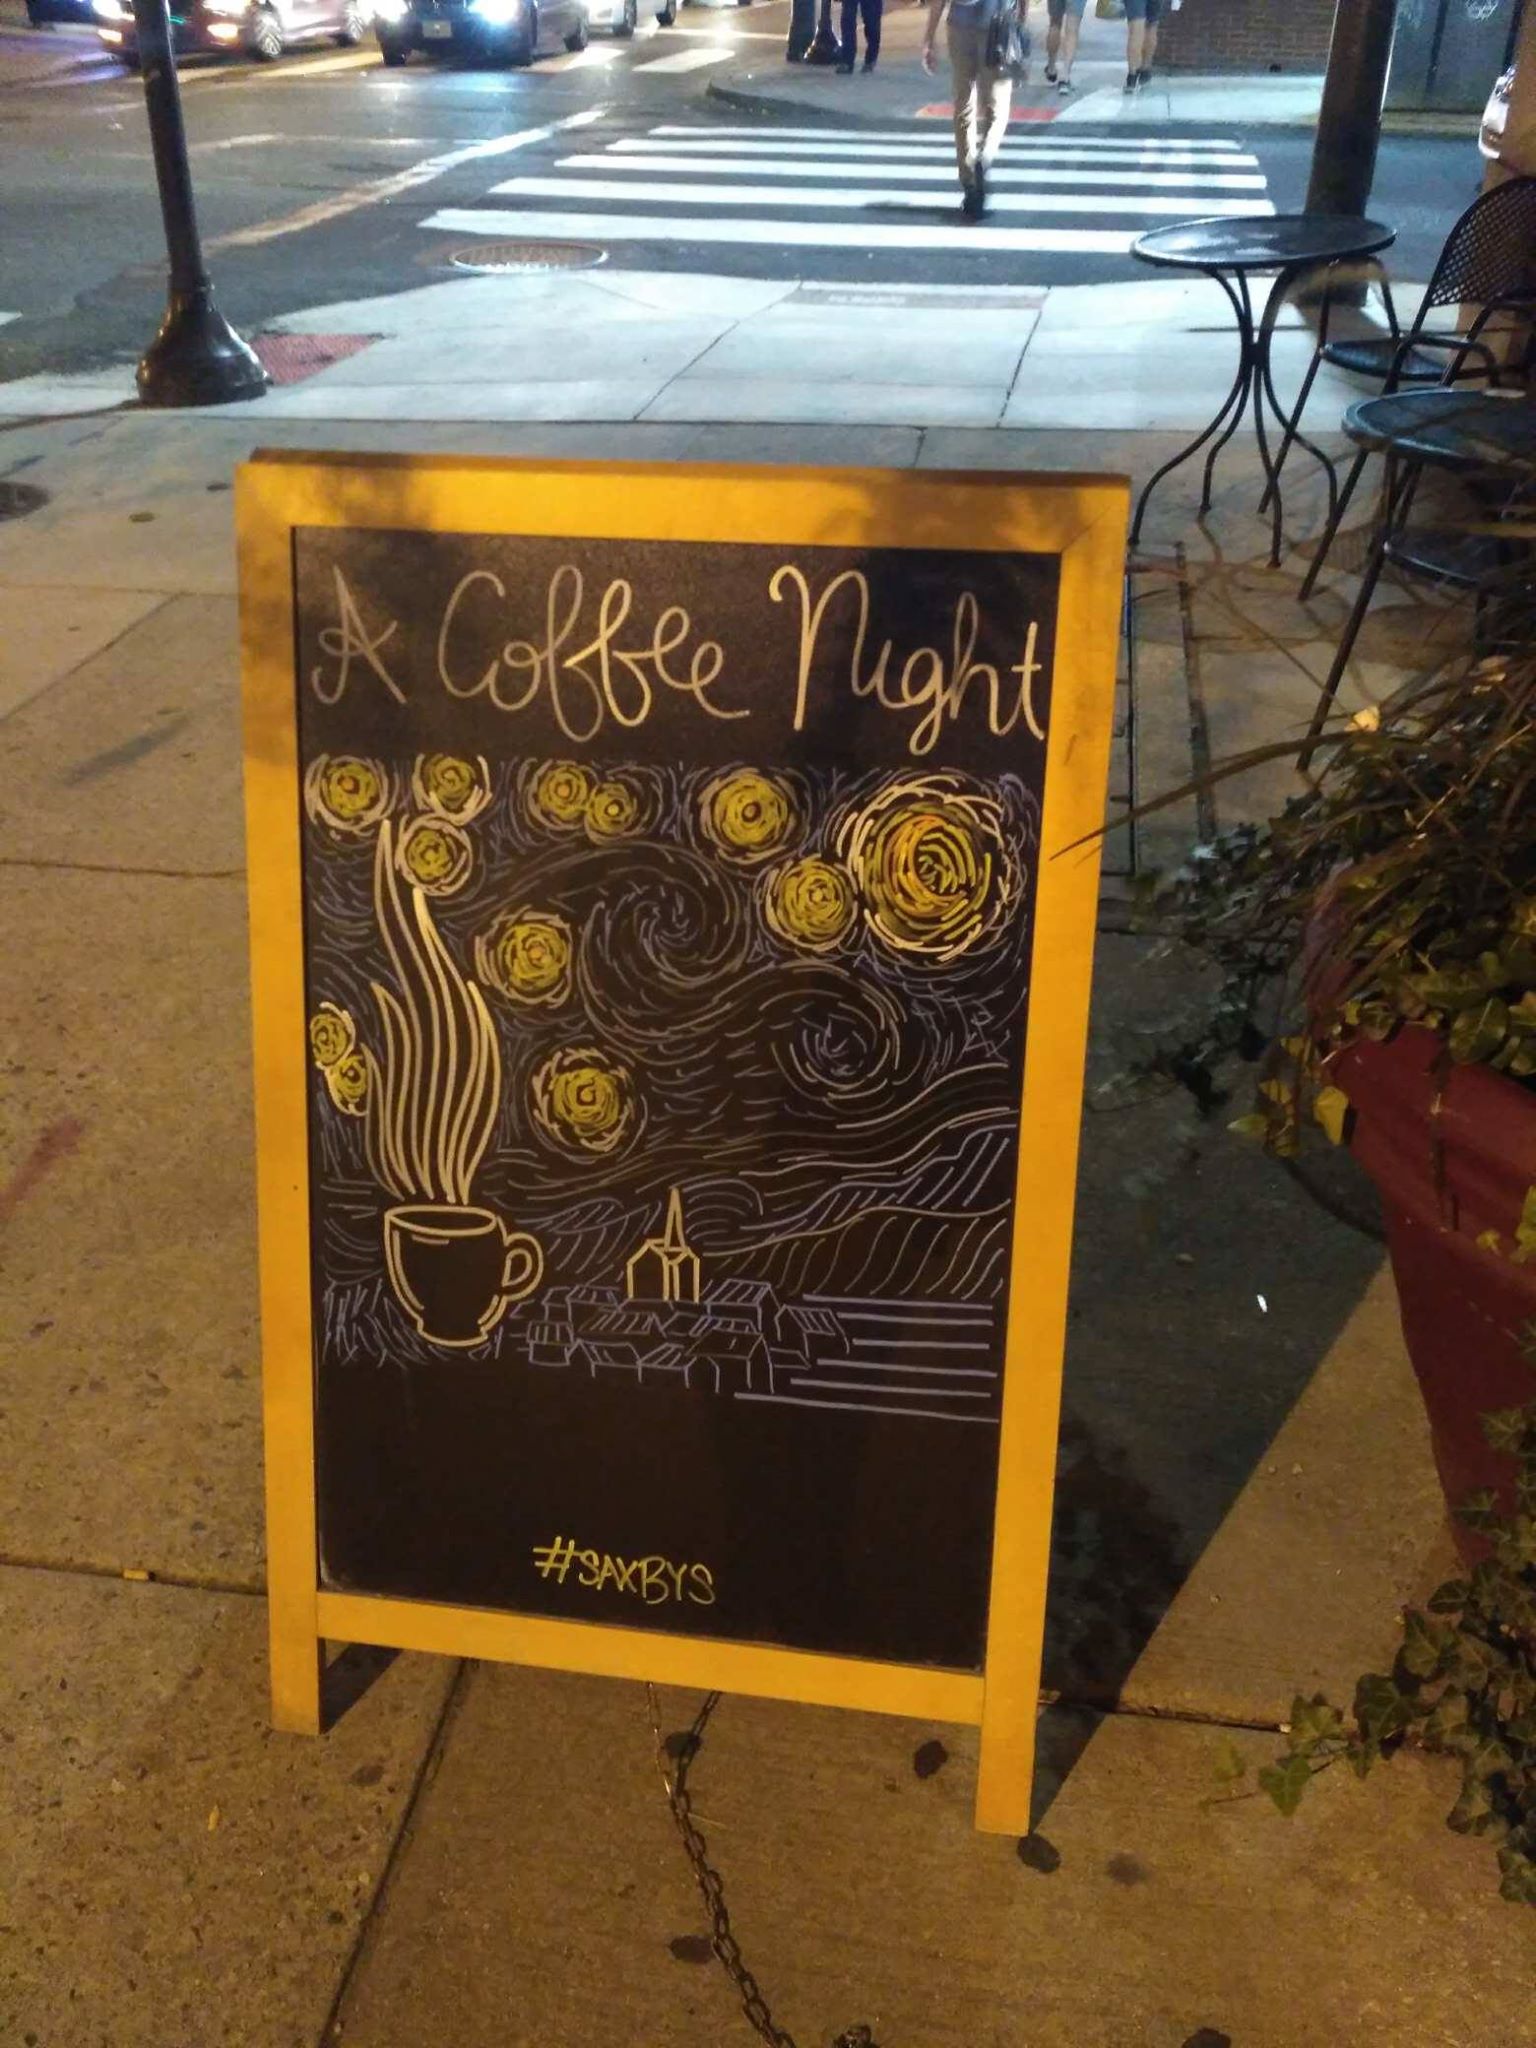 A Coffee Night
#SAXBYS